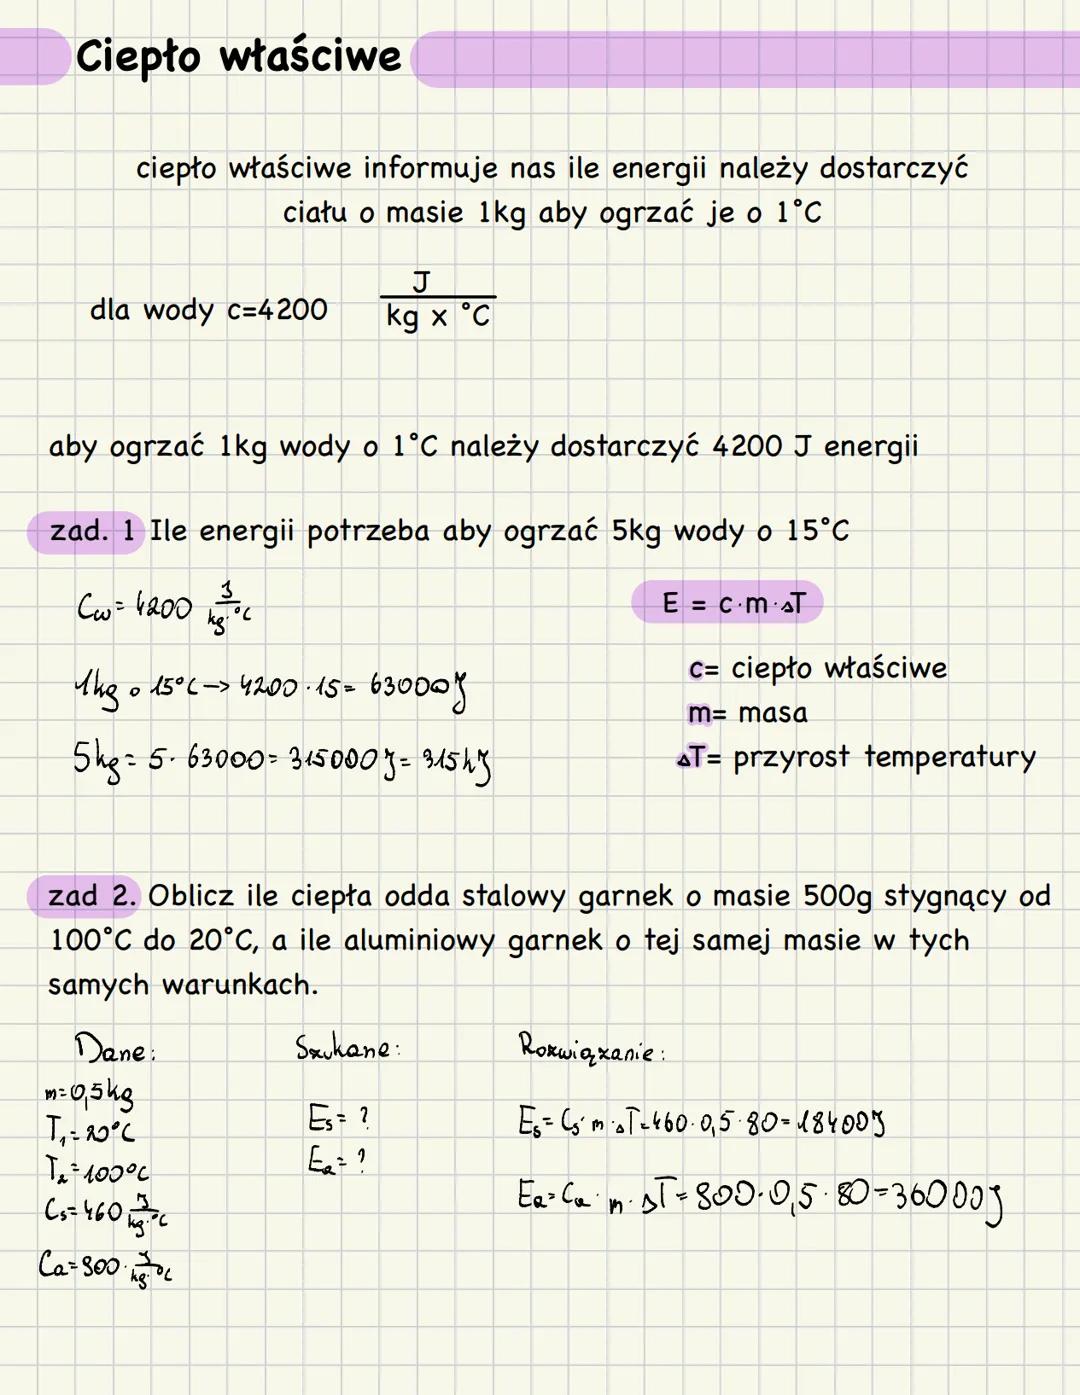 Ciepło właściwe
ciepło właściwe informuje nas ile energii należy dostarczyć
ciału o masie 1kg aby ogrzać je o 1°C
dla wody c=4200 J / kg x °C
aby ogrzać 1kg wody o 1°C należy dostarczyć 4200 J energii
zad. 1 Ile energii potrzeba aby ogrzać 5kg wody o 15°C
Cw = 4200 J / kg·°C
1kg o 15°C -> 4200 · 15 = 63000J
5kg = 5 · 63000 = 315000J = 315kJ
E = c·m·ΔT
c= ciepło właściwe
m= masa
ΔT= przyrost temperatury
zad 2. Oblicz ile ciepła odda stalowy garnek o masie 500g stygnący od
100°C do 20°C, a ile aluminiowy garnek o tej samej masie w tych
samych warunkach.
Dane:
m=0,5kg
T₁=20°C
T₂=100°C
Cs=460 J / kg·°C
Ca=900· J / kg·°C
Szukane:
Es=?
Ea=?
Rozwiązanie:
Es=Cs·m·ΔT=460·0,5·80=18400J
Ea=Ca·m·ΔT=900·0,5·80=36000J